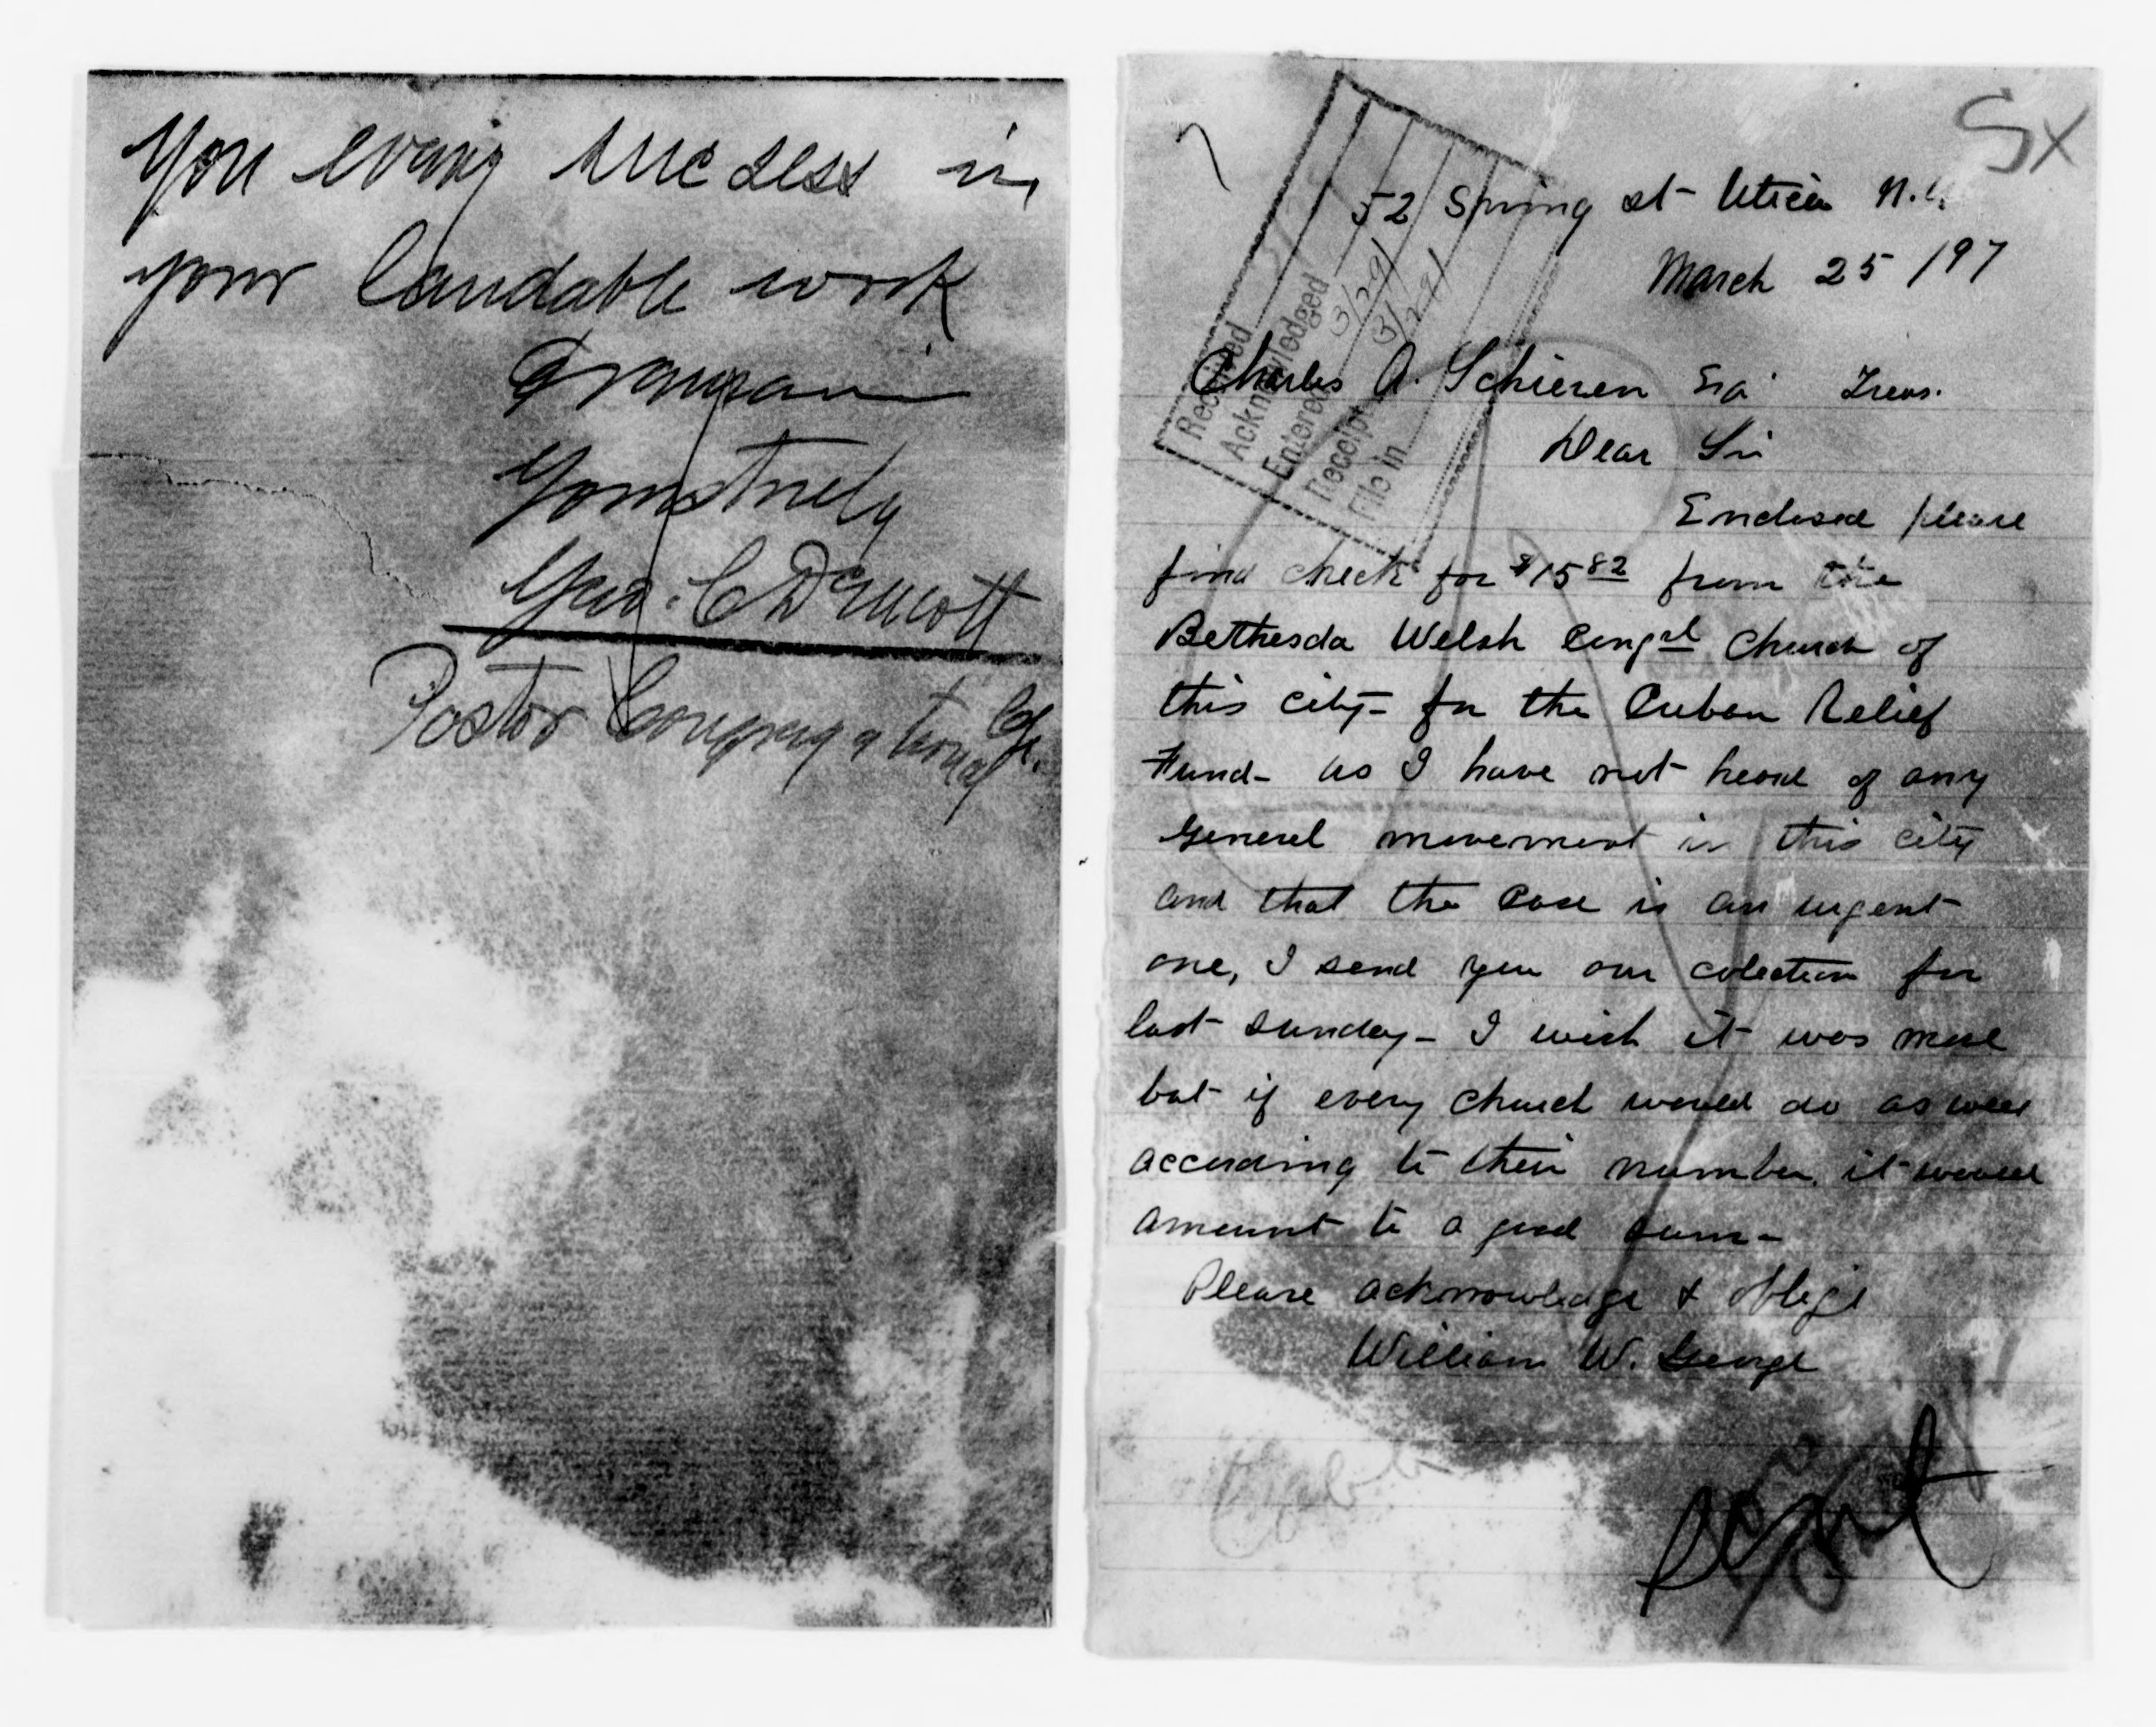 You every success in
your laudable work
I remain
Yours truly
Geo. C DeMott
Pastor Congregational Ch.
Sx
52 Spring st- Utica N.Y.
March 25 /97
Received
Acknowledged 3/29/
Entered 3/29/
Receipt
File in
Charles A. Schieren Esq Treas.
Dear Sir
Enclosed please
find check for $15 82 from the
Bethesda Welsh Congal Church of
this city- for the Cuban Relief
Fund- as I have not heard of any
General movement in this city
and that the case is an urgent
one, I send you our colection for
last sunday- I wish it was more
but if every church would do as well
according to their number, it would
amount to a good sum-
Please acknowledge & oblige
William W. George